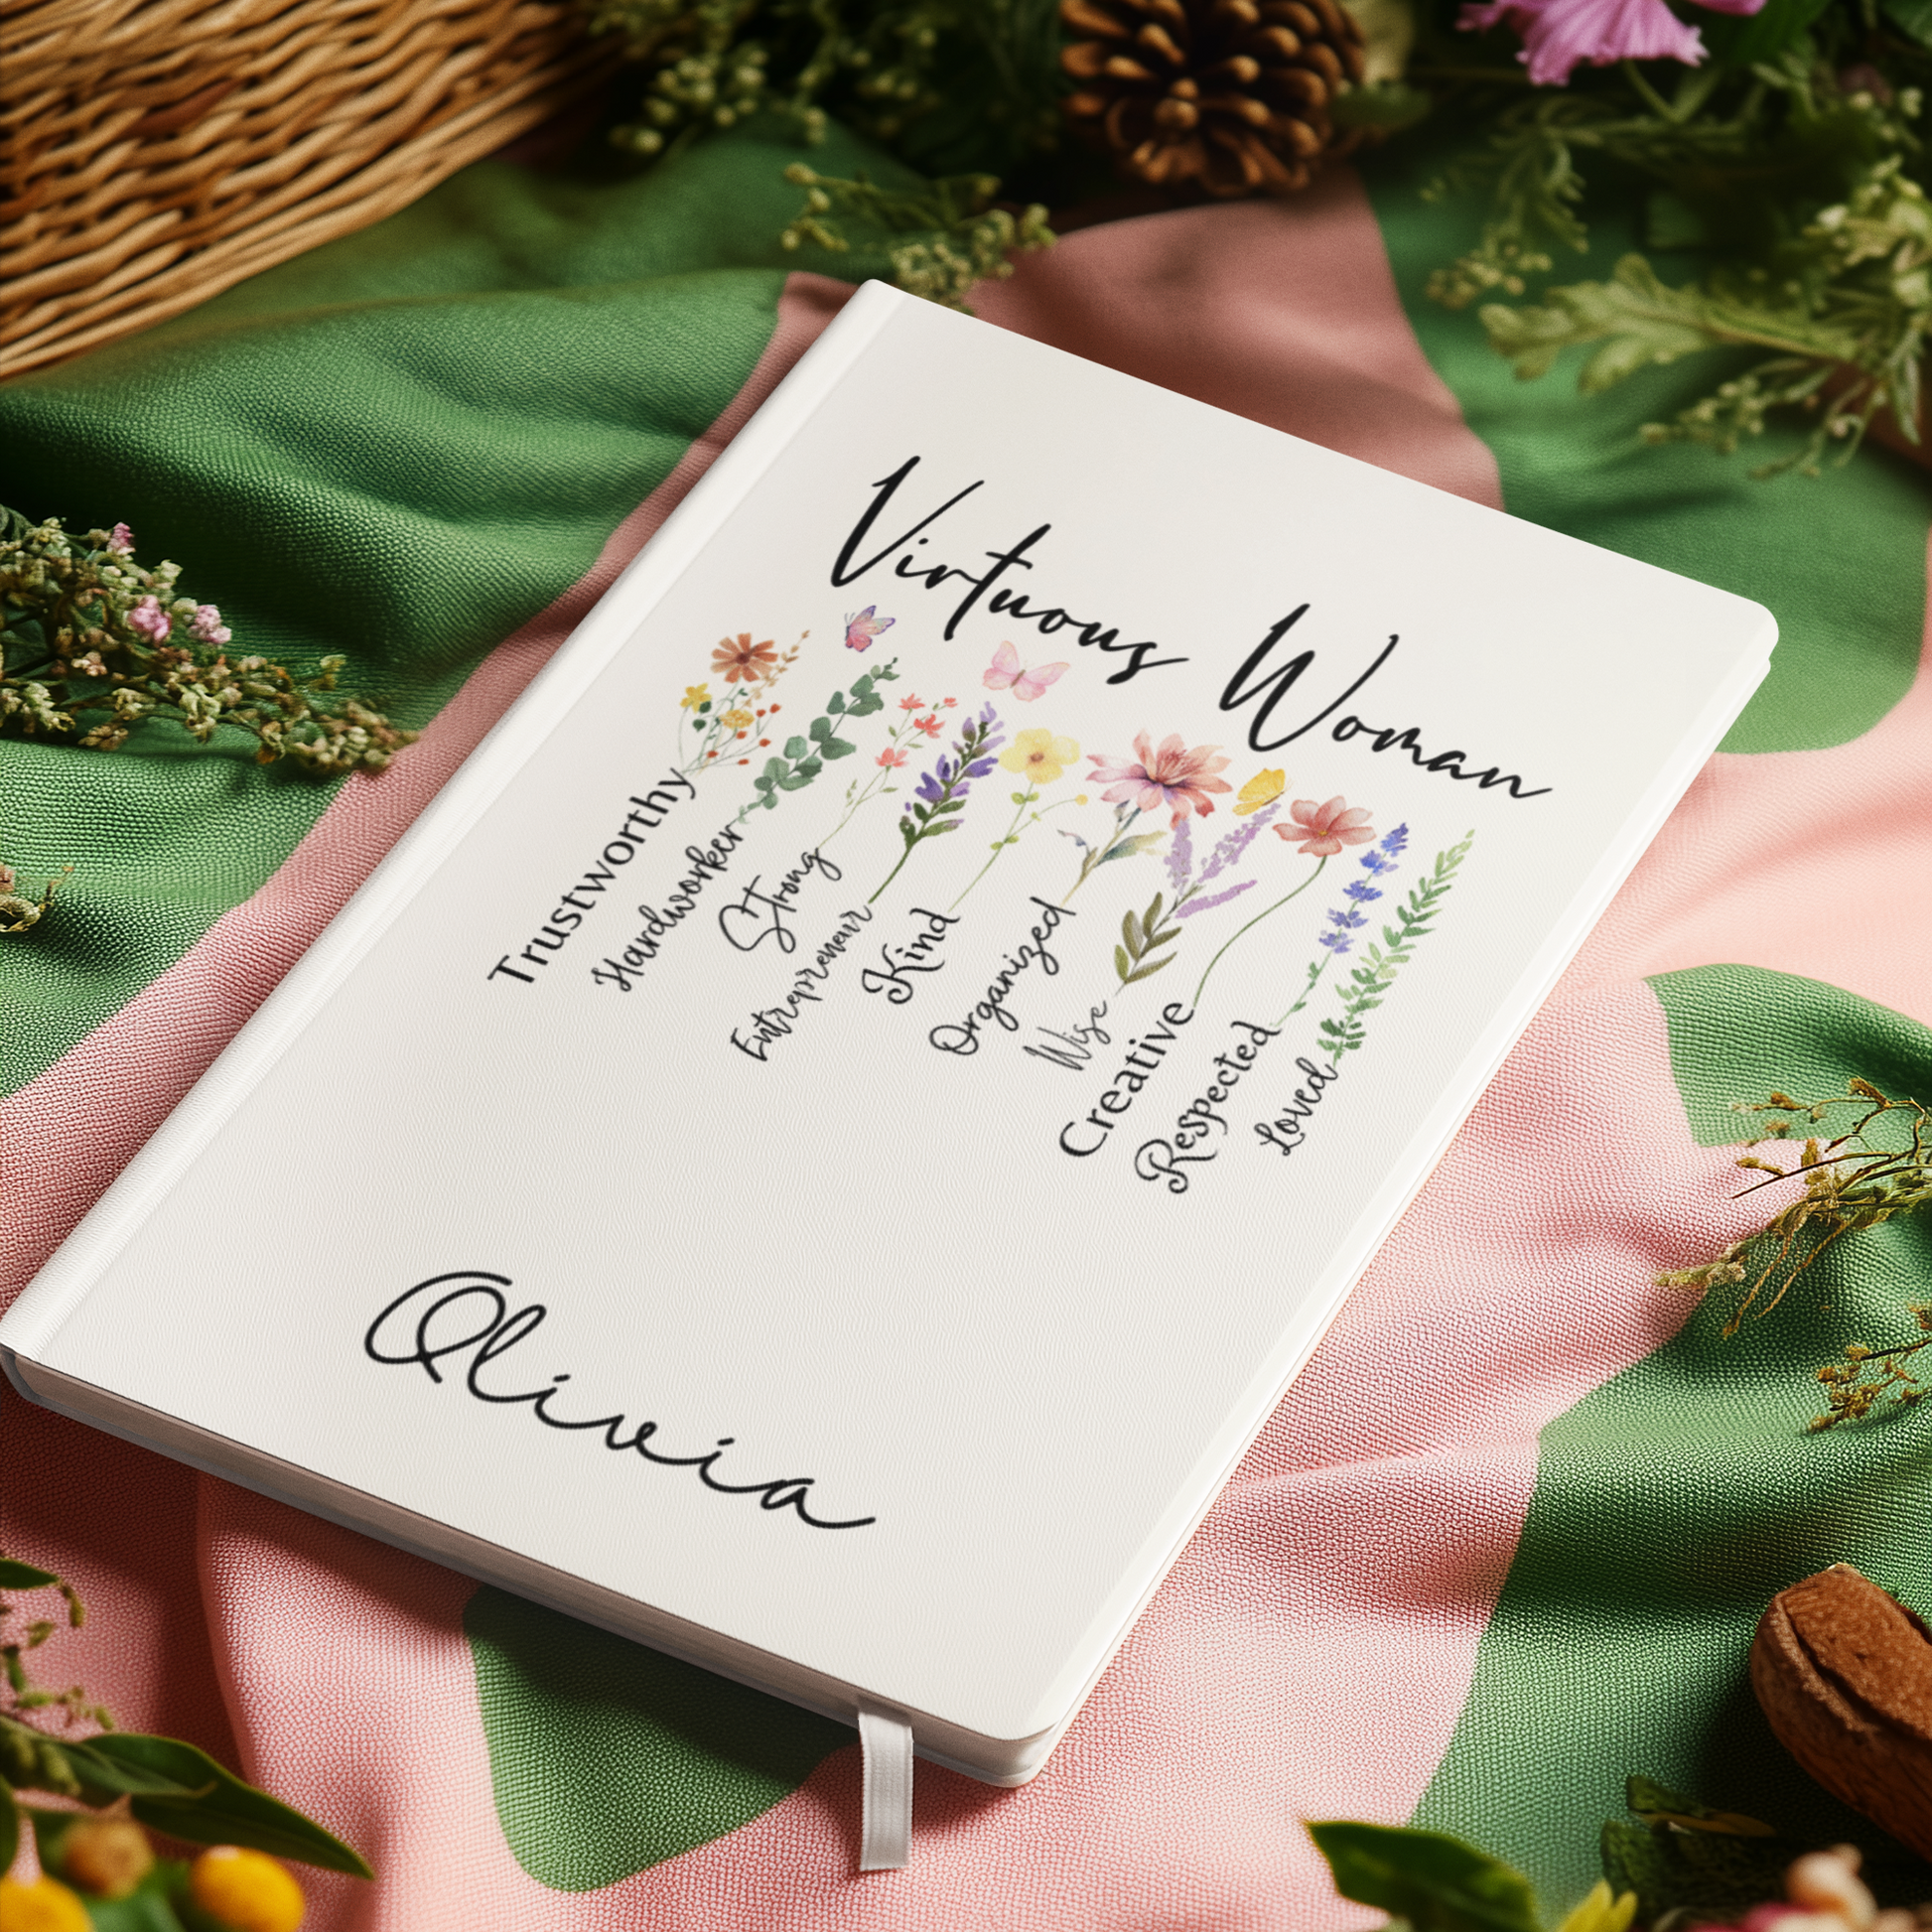 Virtuous Woman
Trustworthy
Hardworker
Strong
Entrepreneur
Kind
Organized
Wise
Creative
Respected
Loved
Olivia